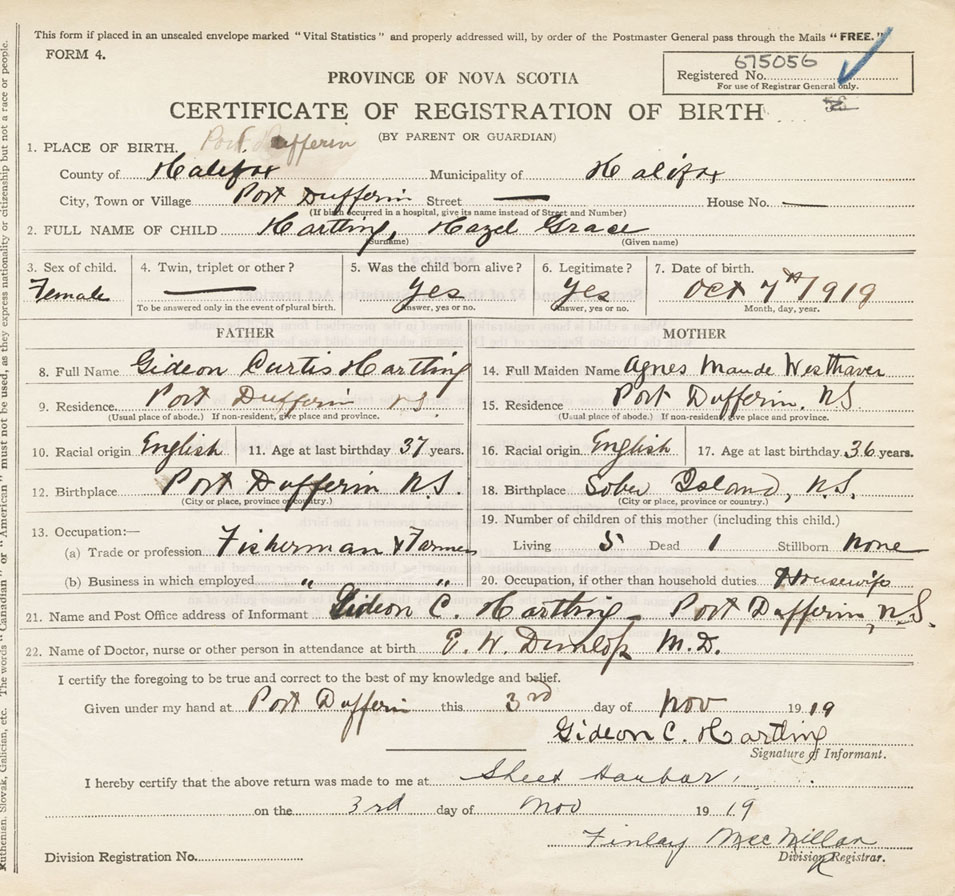 This form if placed in an unsealed envelope marked "Vital Statistics" and properly addressed will, by order of the Postmaster General pass through the Mails "FREE."
FORM 4.
675056
Registered No.
For use of Registrar General only.
PROVINCE OF NOVA SCOTIA
CERTIFICATE OF REGISTRATION OF BIRTH
(BY PARENT OR GUARDIAN)
1. PLACE OF BIRTH. Port Dufferin
County of Halifax Municipality of Halifax
City, Town or Village Port Dufferin Street — House No. —
(If birth occurred in a hospital, give its name instead of Street and Number)
2. FULL NAME OF CHILD Hartling, Hazel Grace
(Surname) (Given name)
3. Sex of child. 4. Twin, triplet or other? 5. Was the child born alive? 6. Legitimate? 7. Date of birth.
Female — yes yes Oct 7th 1919
To be answered only in the event of plural birth. Answer, yes or no. Answer, yes or no. Month, day, year.
FATHER MOTHER
8. Full Name Gideon Curtis Hartling 14. Full Maiden Name Agnes Maude Westhaver
9. Residence. Port Dufferin N.S. 15. Residence Port Dufferin. N.S.
(Usual place of abode.) If non-resident, give place and province. (Usual place of abode.) If non-resident, give place and province.
10. Racial origin English 11. Age at last birthday 37 years. 16. Racial origin English 17. Age at last birthday 36 years.
12. Birthplace Port Dufferin N.S. 18. Birthplace Sober Island, N.S.
(City or place, province or country.) (City or place, province or country.)
13. Occupation:— 19. Number of children of this mother (including this child.)
(a) Trade or profession Fisherman & Farmer Living 5 Dead 1 Stillborn none
(b) Business in which employed " " 20. Occupation, if other than household duties Housewife
21. Name and Post Office address of Informant Gideon C. Hartling Port Dufferin, N.S.
22. Name of Doctor, nurse or other person in attendance at birth E. W. Dunlop M.D.
I certify the foregoing to be true and correct to the best of my knowledge and belief.
Given under my hand at Port Dufferin this 3rd day of Nov 1919
Gideon C. Hartling
Signature of Informant.
I hereby certify that the above return was made to me at Sheet Harbor.
on the 3rd day of Nov 1919
Finlay MacMillan
Division Registrar.
Division Registration No.
Ruthenian, Slovak, Galician, etc. The words "Canadian" or "American" must not be used, as they express nationality or citizenship but not a race or people.